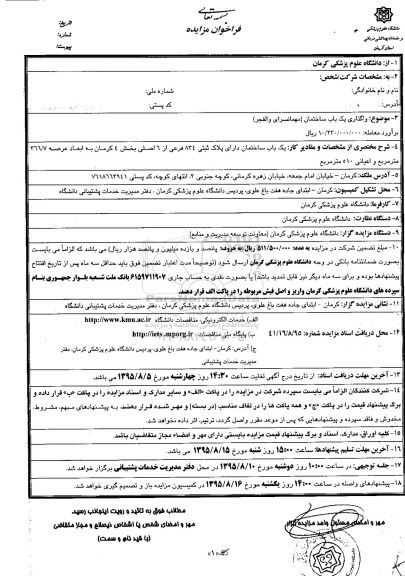 بسمه تعالی
فراخوان مزایده
تاریخ:
شماره:
پیوست:
دانشگاه علوم پزشکی
و خدمات بهداشتی درمانی
استان کرمان
۱- از: دانشگاه علوم پزشکی کرمان
۲- به: مشخصات شرکت/شخص:
نام و نام خانوادگی: شماره ملی:
آدرس: کد پستی:
۳- موضوع: واگذاری یک باب ساختمان (مهمانسرای والفجر)
برآورد معامله: ۱۰/۲۳۰/۰۰۰/۰۰۰ ریال
۴- شرح مختصری از مشخصات و مقادیر کار: یک باب ساختمان دارای پلاک ثبتی ۸۳۴ فرعی از ۶ اصلی بخش ۴ کرمان به ابعاد عرصه ۳۶۶/۷
مترمربع و اعیانی ۵۱۰ مترمربع
۵- آدرس ملک: کرمان – خیابان امام جمعه، خیابان زهره کرمانی، کوچه جنوبی ۲، انتهای کوچه، کد پستی ۷۶۱۸۶۶۳۹۴۱
۶- محل تشکیل کمیسیون: کرمان – ابتدای جاده هفت باغ علوی، پردیس دانشگاه علوم پزشکی کرمان، دفتر مدیریت خدمات پشتیبانی دانشگاه
۷- کارفرما: دانشگاه علوم پزشکی کرمان
۸- دستگاه نظارت: دانشگاه علوم پزشکی کرمان
۹- دستگاه مزایده گزار: دانشگاه علوم پزشکی کرمان (معاونت توسعه مدیریت و منابع)
۱۰- مبلغ تضمین شرکت در مزایده به عدد: ۵۱۱/۵۰۰/۰۰۰ ریال به حروف: پانصد و یازده میلیون و پانصد هزار ریال) می باشد که الزاماً می بایست
بصورت ضمانتنامه بانکی در وجه دانشگاه علوم پزشکی کرمان ارسال شود (توضیحاً مدت اعتبار تضمین فوق باید حداقل سه ماه پس از تاریخ افتتاح
پیشنهادها بوده و برای سه ماه دیگر نیز قابل تمدید باشد) یا بصورت نقدی به حساب جاری ۶۱۵۹۷۱۱۹۰۷ بانک ملت شعبه بلوار جمهوری بنام
سپرده های دانشگاه علوم پزشکی کرمان واریز و اصل فیش مربوطه را در پاکت الف قرار دهند.
۱۱- نشانی مزایده گزار: کرمان – ابتدای جاده هفت باغ علوی، پردیس دانشگاه علوم پزشکی کرمان، دفتر مدیریت خدمات پشتیبانی دانشگاه
۱۲- محل دریافت اسناد مزایده شماره: ۴۱/۱۶/۸/۹۵
الف) خدمات الکترونیکی، مناقصات دانشگاه http://www.kmu.ac.ir
ب) پایگاه ملی مناقصات: http://iets.mporg.ir
ج) آدرس: کرمان–ابتدای جاده هفت باغ علوی، پردیس دانشگاه علوم پزشکی کرمان، دفتر
مدیریت خدمات پشتیبانی
۱۳- آخرین مهلت دریافت اسناد: از تاریخ درج آگهی لغایت ساعت ۱۴:۳۰ روز چهارشنبه مورخ ۱۳۹۵/۸/۵ می باشد.
۱۴- شرکت کنندگان الزاماً می بایست سپرده شرکت در مزایده را در پاکت «الف» و سایر مدارک و اسناد مزایده را در پاکت «ب» قرار داده و
برگ پیشنهاد قیمت را در پاکت «ج» و همه پاکت ها را در لفاف مناسب (در بسته) و مهر شده قرار دهند. به پیشنهادهای مبهم، مشروط،
مخدوش و فاقد سپرده و پیشنهادهایی که پس از موعد مقرر واصل گردد، ترتیب اثر داده نخواهد شد.
۱۵- کلیه اوراق، مدارک، اسناد و برگ پیشنهاد قیمت مزایده بایستی دارای مهر و امضاء مجاز متقاضیان باشد.
۱۶- آخرین مهلت تسلیم پیشنهادها: ساعت ۱۵:۰۰ روز شنبه مورخ ۱۳۹۵/۸/۱۵ می باشد.
۱۷- جلسه توجیهی: در ساعت ۱۰:۰۰ روز دوشنبه مورخ ۱۳۹۵/۸/۱۰ در محل دفتر مدیریت خدمات پشتیبانی برگزار خواهد شد.
۱۸- پیشنهادهای واصله در ساعت ۱۴:۰۰ روز یکشنبه مورخ ۱۳۹۵/۸/۱۶ در کمیسیون مزایده باز و تصمیم گیری خواهد شد.
مطالب فوق به تائید و رویت اینجانب رسید.
مهر و امضای شخص یا اشخاص ذیصلاح و مجاز متقاضی
(با قید نام و سمت)
مهر و امضای مسئول واحد مزایده گزار